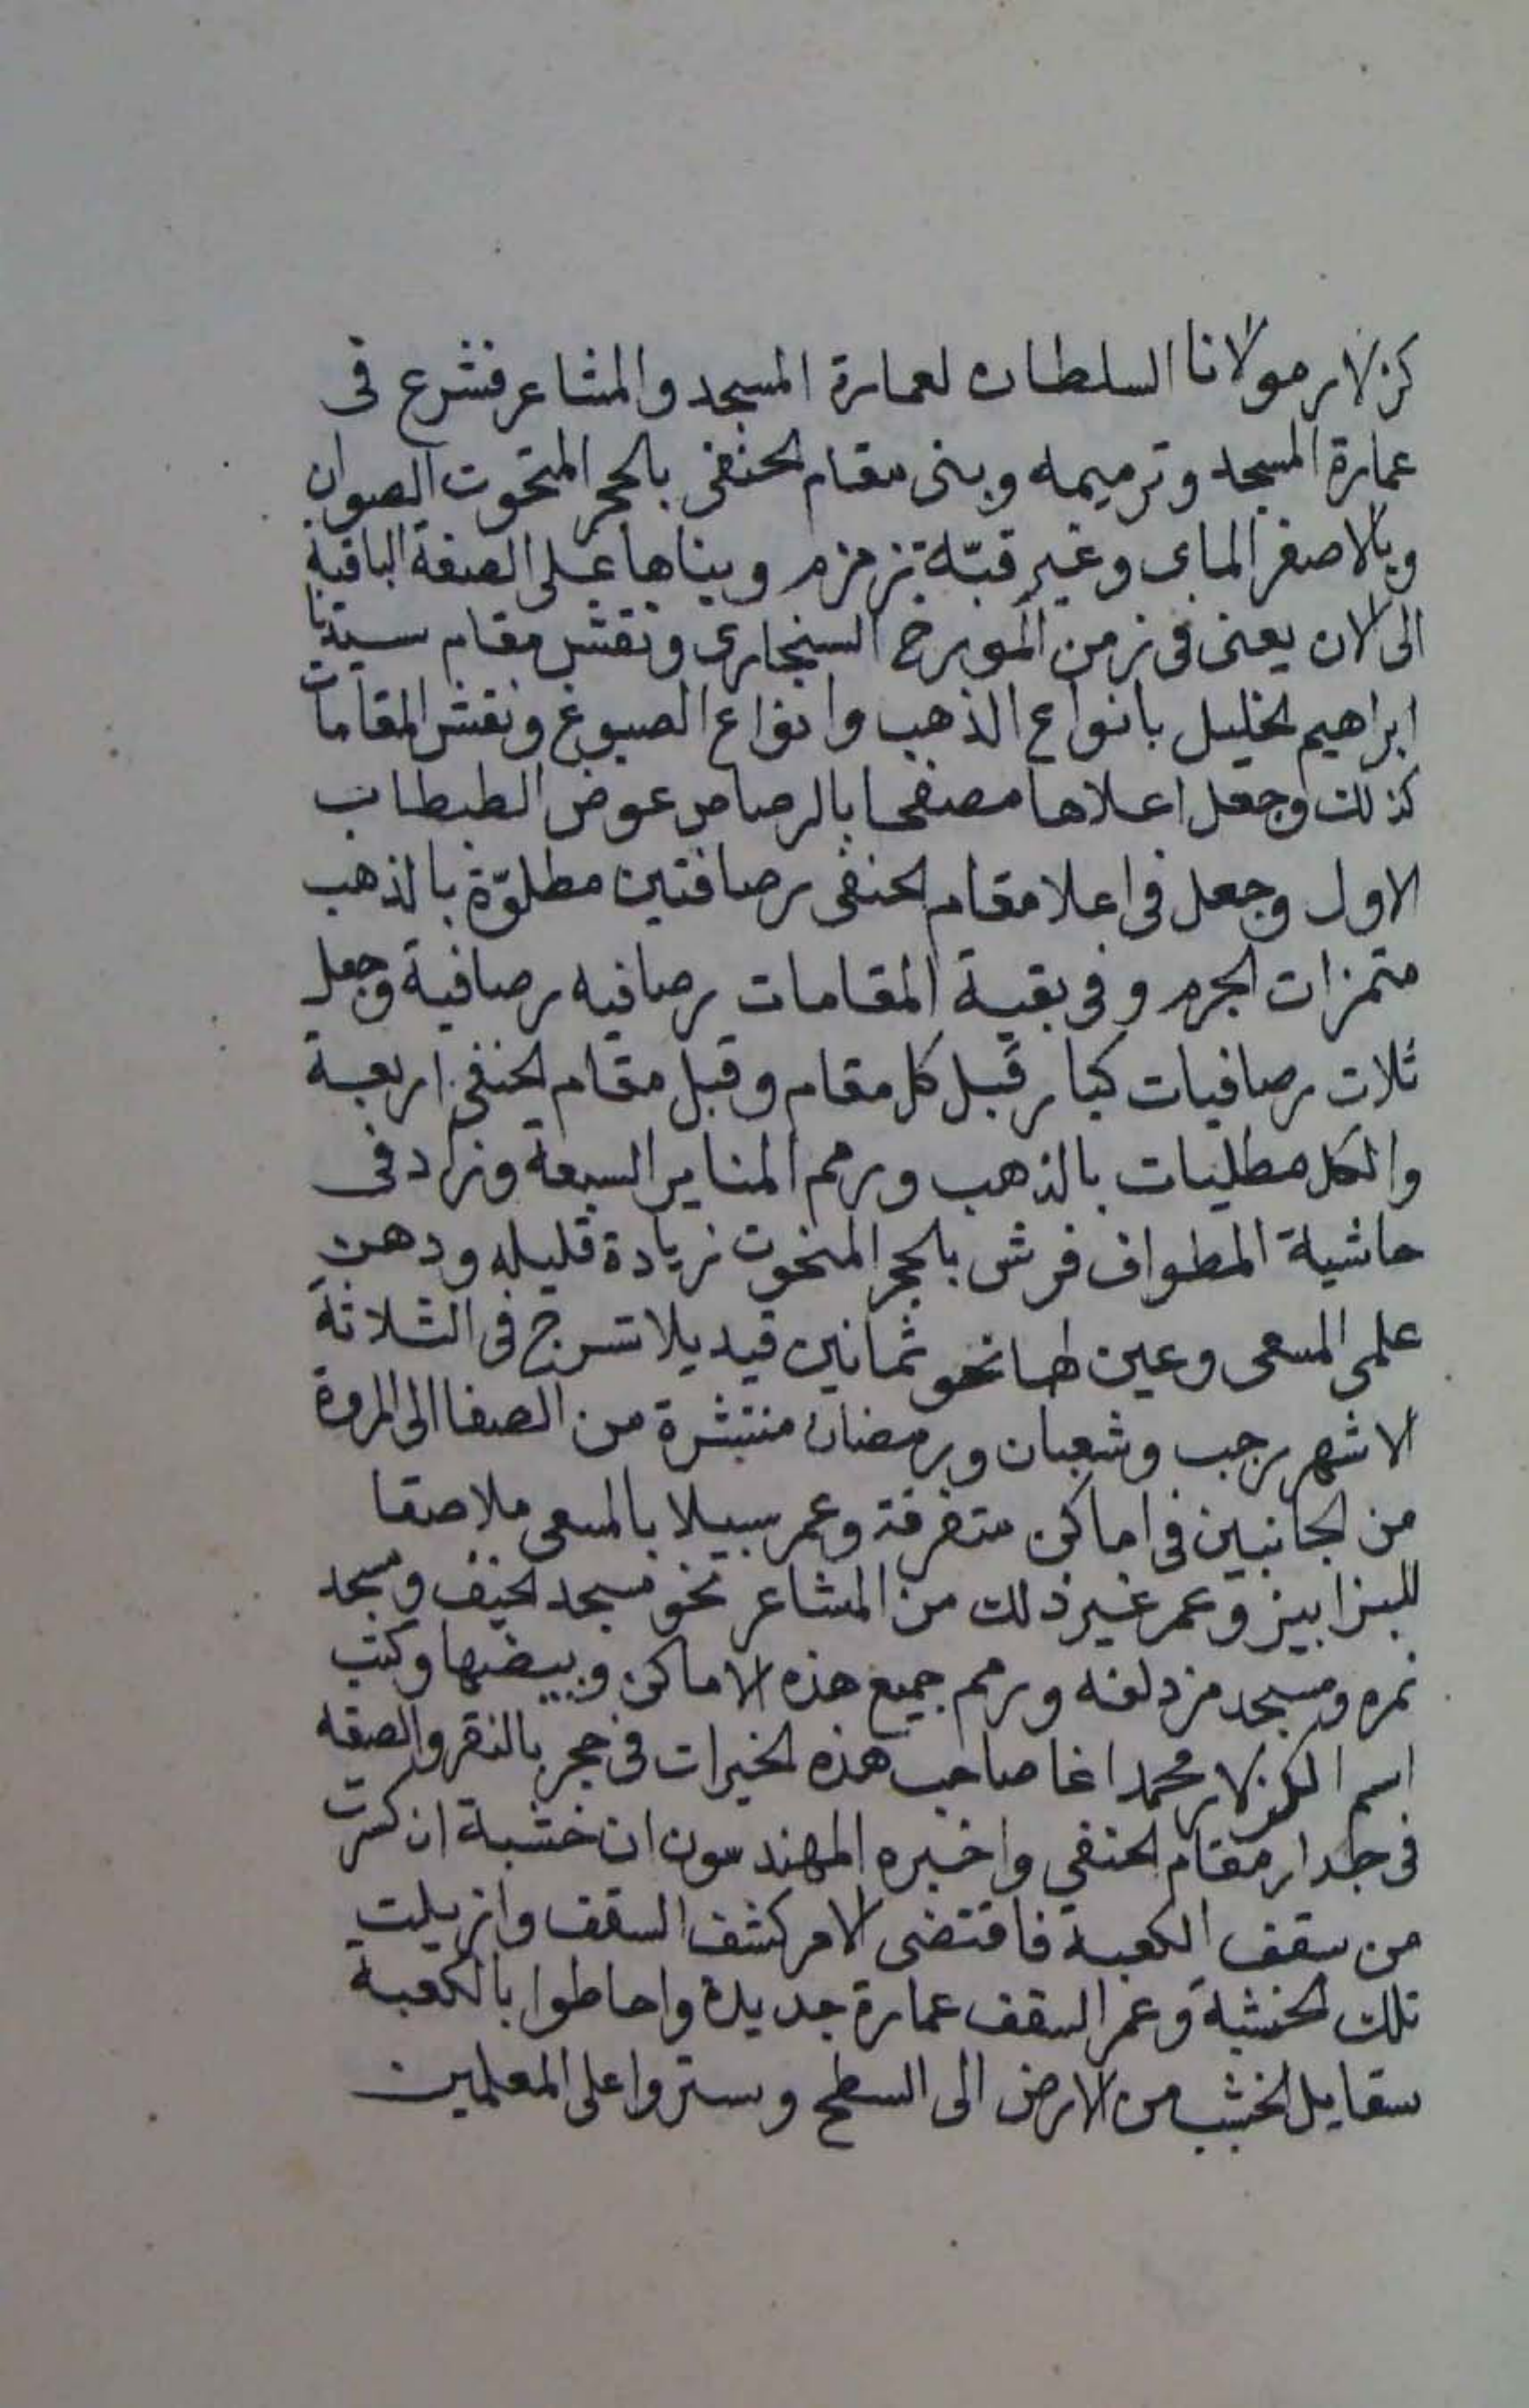 كزلار مولانا السلطان لعمارة المسجد والمشاعر فشرع فى
عمارة المسجد وترميمه وبنى مقام الحنفى بالحجر المنحوت الصوان
وبالاصفر الماى وغير قبّة زمزم وبناها على الصفة الباقية
الى الان يعنى فى زمن المورخ السنجارى ونقش مقام سيدنا
ابراهيم الخليل بانواع الذهب وانواع الصبوغ ونقش المقامات
كذلك وجعل اعلاها مصفحا بالرصاص عوض الطبطاب
الاول وجعل فى اعلا مقام الحنفى رصافتين مطلوّة بالذهب
متمزات الجرم وفى بقية المقامات رصافيه رصافية وجعل
ثلاث رصافيات كبار قبل كل مقام وقبل مقام الحنفى اربعة
والكل مطليات بالذهب ورمم المناير السبعة وزاد فى
حاشية المطواف فرش بالحجر المنحوت زيادة قليله ودهن
علمى المسعى وعين لها نحو ثمانين قيديلا تسرج فى الثلاثة
الاشهر رجب وشعبان ورمضان منتشرة من الصفا الى المروة
من الجانبين فى اماكن متفرقة وعمر سبيلا بالمسعى ملاصقا
للبزابيز وعمر غير ذلك من المشاعر نحو مسجد الخيف ومسجد
نمره ومسجد مزدلفه ورمم جميع هذه الاماكن وبيضها وكتب
اسم الكزلار محمد اغا صاحب هذه الخيرات فى حجر بالنقر والصفه
فى جدار مقام الحنفى واخبره المهندسون ان خشبة انكسرت
من سقف الكعبة فاقتضى الامر كشف السقف وازيلت
تلك الخشبة وعمر السقف عمارة جديدة واحاطوا بالكعبة
سقايل الخشب من الارض الى السطح وستروا على المعلمين